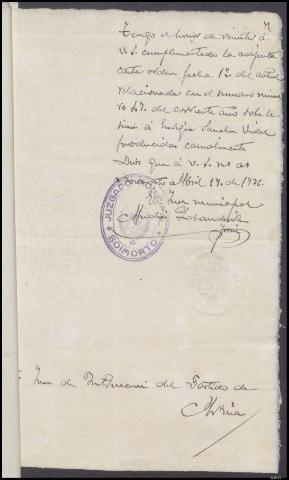 Tengo el honor de remitir á
V.S. cumplimentada la adjunta
carta orden fecha 1º del actual
relacionada con el sumario núme-
ro 47 del corriente año sobre le-
siones á Enrique Sanchez Vidal
producidas casualmente
Dios gue á V.S. ms as
Abril 17 de 1936
El Juez municipal
JUZGADO
BOIMORTO
Sr. Juez de Instrucción del Partido de
Arzúa